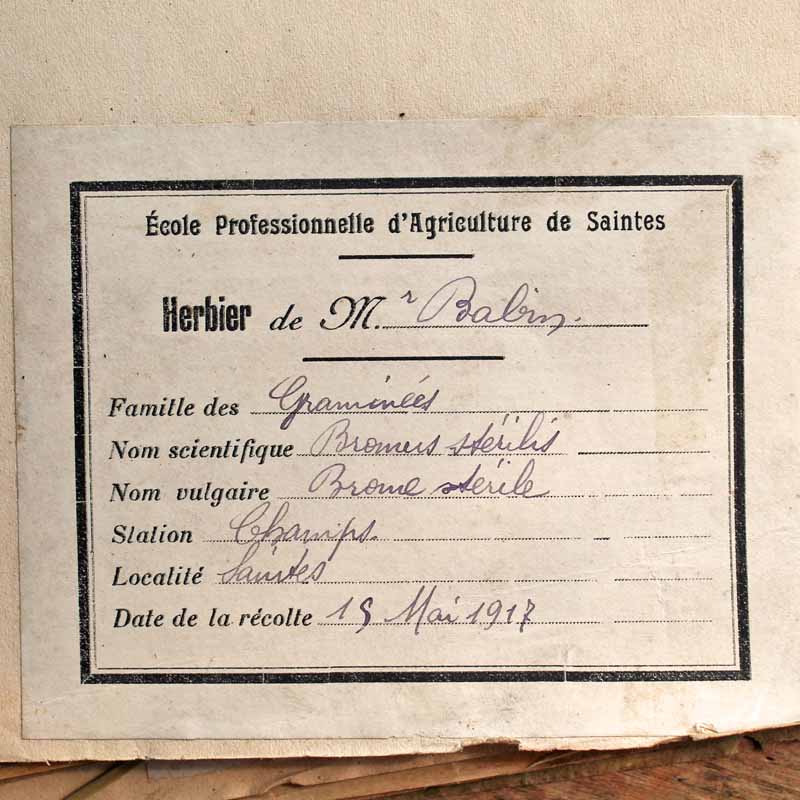 École Professionnelle d'Agriculture de Saintes
Herbier de M.r Babin.
Famille des Graminées
Nom scientifique Bromus stérilis
Nom vulgaire Brome stérile
Station Champs.
Localité Saintes
Date de la récolte 15 Mai 1917